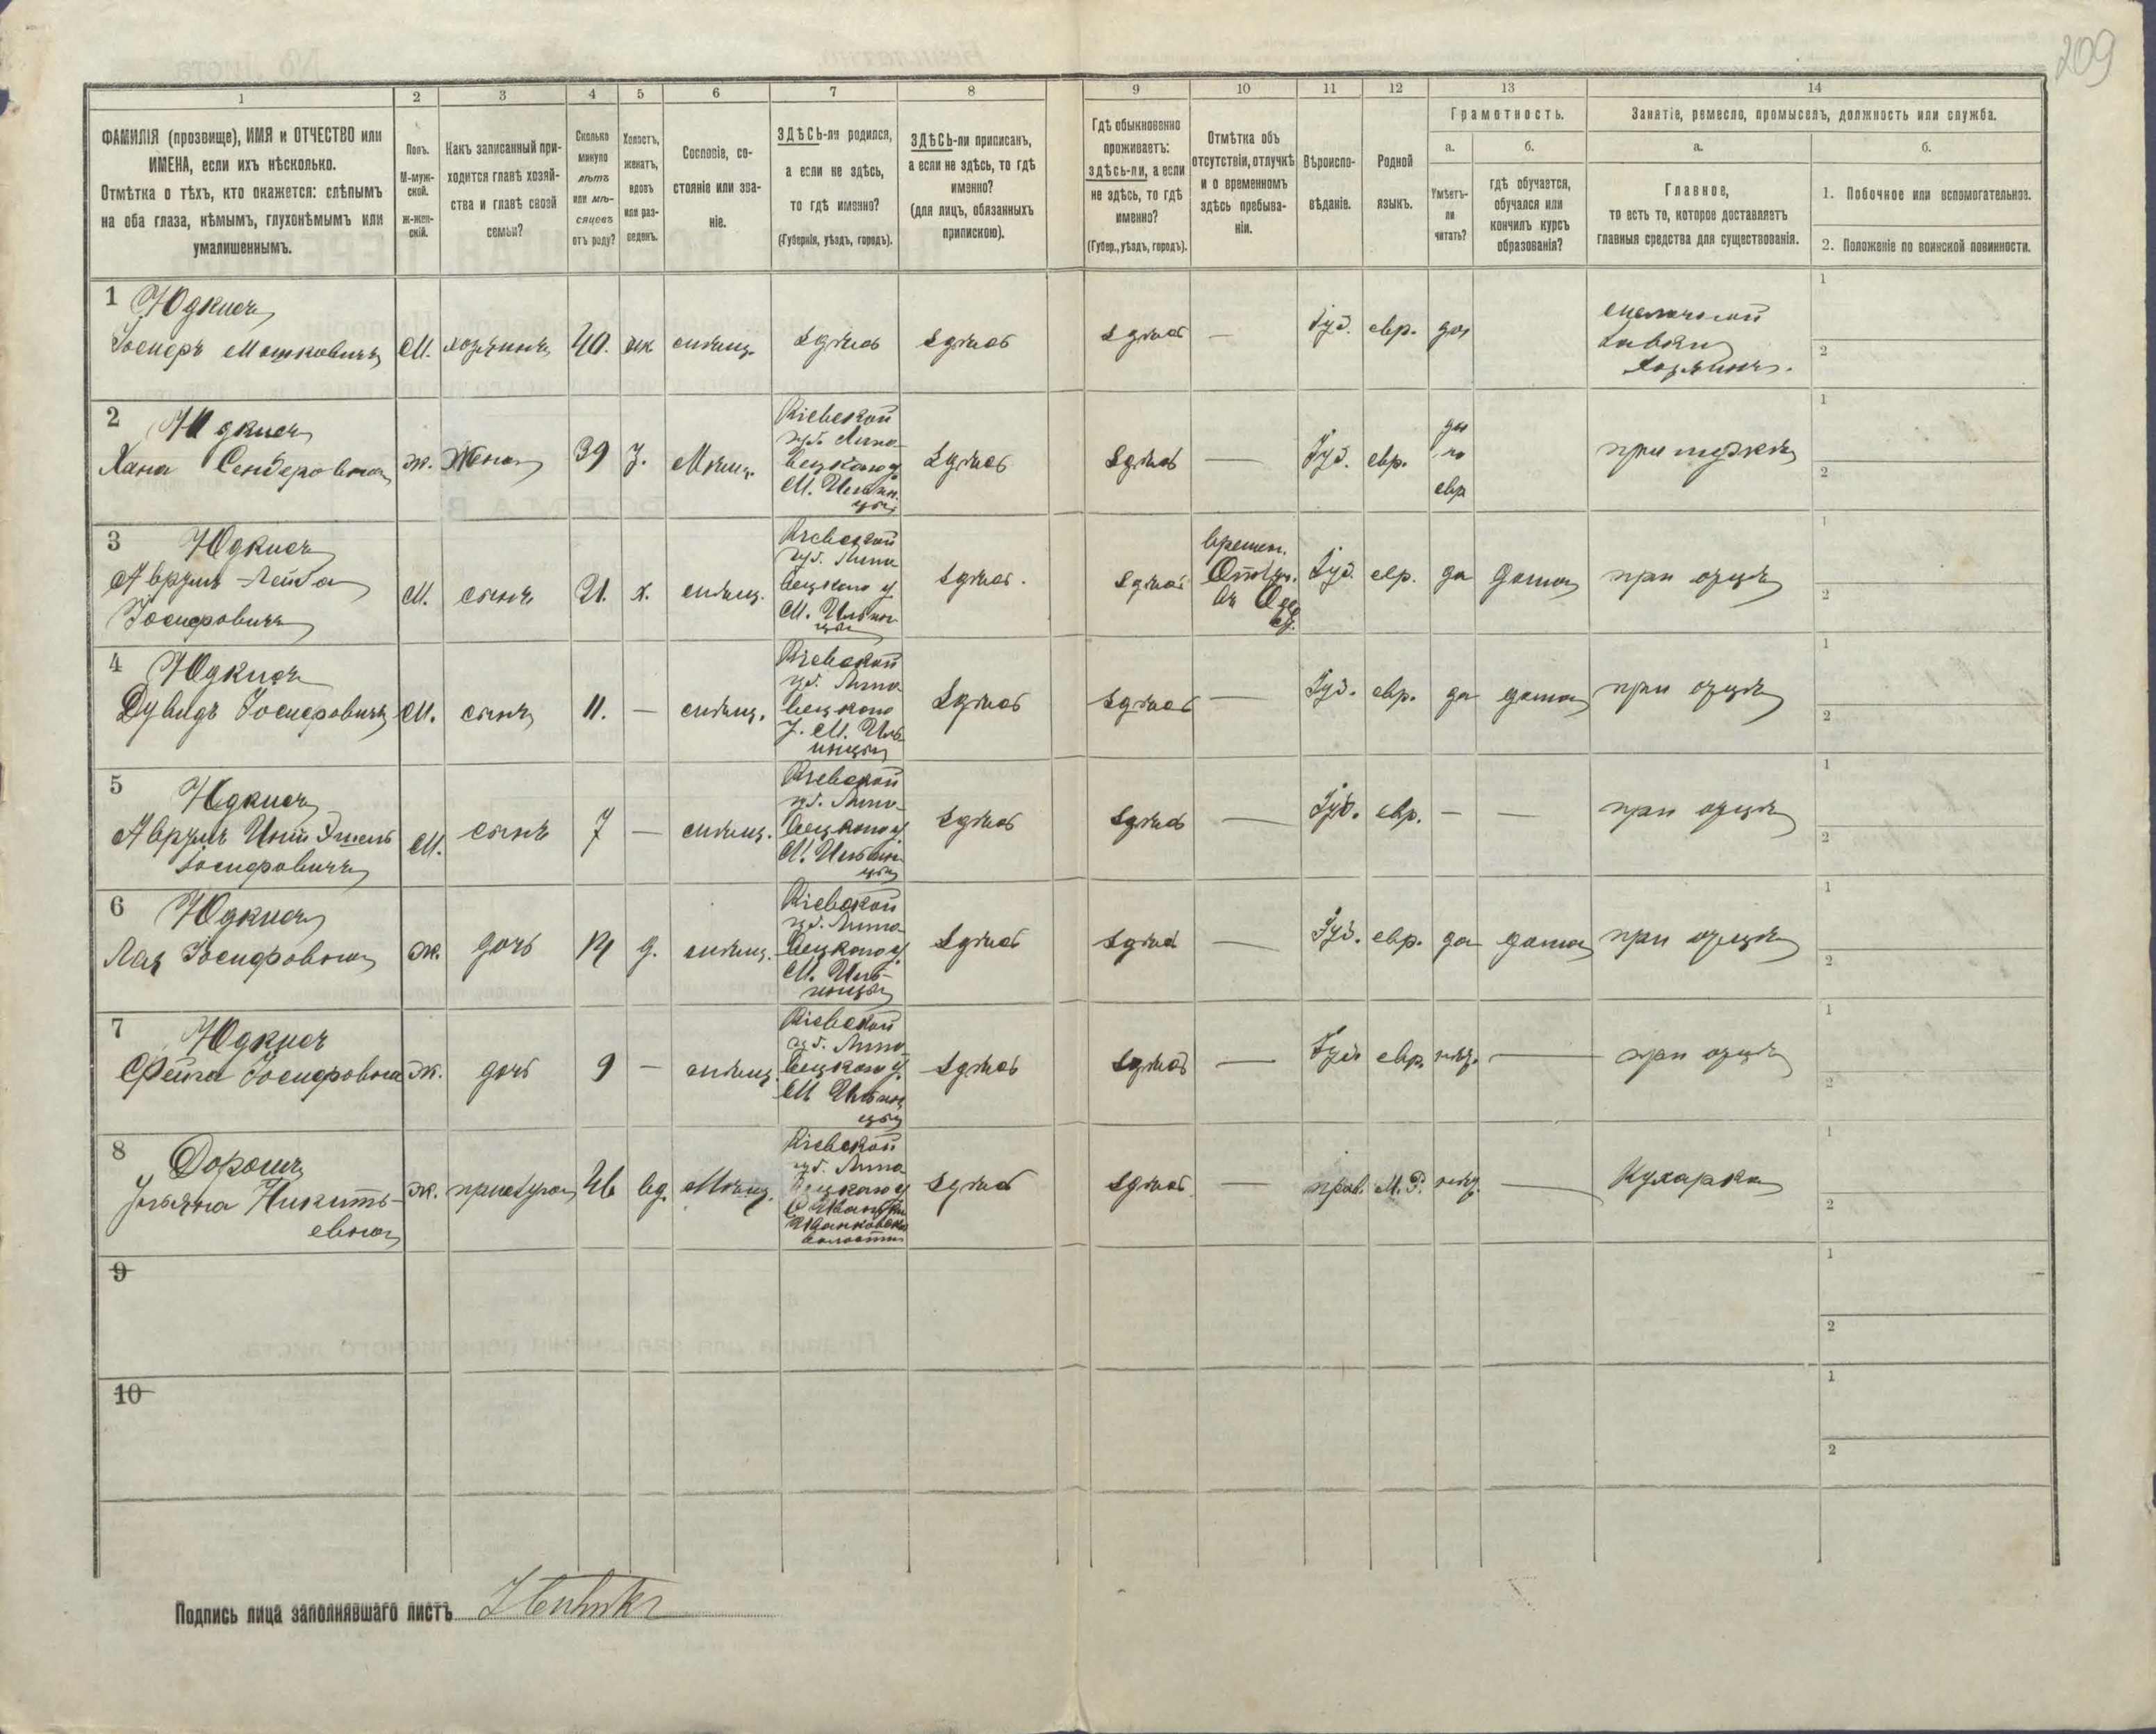 209
1
2
3
4
5
6
7
8
9
10
11
12
13
14
ФАМИЛІЯ (прозвище), ИМЯ и ОТЧЕСТВО или
ИМЕНА, если ихъ нѣсколько.
Отмѣтка о тѣхъ, кто окажется: слѣпымъ
на оба глаза, нѣмымъ, глухонѣмымъ или
умалишеннымъ.
Полъ.
М-муж-
ской.
ж-жен-
скій.
Какъ записанный при-
ходится главѣ хозяй-
ства и главѣ своей
семьи?
Сколько
минуло
лѣтъ
или мѣ-
сяцевъ
отъ роду?
Холостъ,
женатъ,
вдовъ
или раз-
веденъ.
Сословіе, со-
стояніе или зва-
ніе.
ЗДѢСЬ-ли родился,
а если не здѣсь,
то гдѣ именно?
(Губернія, уѣздъ, городъ).
ЗДѢСЬ-ли приписанъ,
а если не здѣсь, то гдѣ
именно?
(для лицъ, обязанныхъ
припискою).
Гдѣ обыкновенно
проживаетъ:
здѣсь-ли, а если
не здѣсь, то гдѣ
именно?
(Губер., уѣздъ, городъ).
Отмѣтка объ
отсутствіи, отлучкѣ
и о временномъ
здѣсь пребыва-
ніи.
Вѣроиспо-
вѣданіе.
Родной
языкъ.
Грамотность.
а.
Умѣетъ-
ли
читать?
б.
гдѣ обучается,
обучался или
кончилъ курсъ
образованія?
Занятіе, ремесло, промыселъ, должность или служба.
а.
Главное,
то есть то, которое доставляетъ
главныя средства для существованія.
б.
1. Побочное или вспомогательное.
2. Положеніе по воинской повинности.
1 Юдкисъ
Іосифъ Мошковичъ
М.
хозяинъ
40.
жен
мѣщ.
здѣсь
здѣсь
здѣсь
—
Іуд.
евр.
да
лавки
хозяинъ.
1
2
2 Юдкисъ
Хана Сендеровна
ж.
Жена
39
З.
Мѣщ.
Кіевской
губ. Липо-
вецкого у
М. Ильин-
цы
здѣсь
здѣсь
—
Іуд.
евр.
да
по
евр
при мужѣ
1
2
3 Юдкисъ
Аврумъ-Лейба
Іосифовичъ
М.
сынъ
21.
х.
мѣщ.
Кіевской
губ. Липо
вецкого у
М. Ильин
цы
здѣсь.
здѣсь
времен.
Отлуч.
въ Одес
Іуд.
евр.
да
дома
при отцѣ
1
2
4 Юдкисъ
Дувидъ Іосифовичъ
М.
сынъ
11.
—
мѣщ.
Кіевской
губ. Липо
вецкого
У. М. Иль
инцы
здѣсь
здѣсь
—
Іуд.
евр.
да
дома
при отцѣ
1
2
5 Юдкисъ
Аврумъ
Іосифовичъ
М.
сынъ
7
—
мѣщ.
Кіевской
губ. Липо-
вецкого у
М. Ильин
цы
здѣсь
здѣсь
—
Іуд.
евр.
—
—
при отцѣ
1
2
6 Юдкисъ
Лая Іосифовна
ж.
дочь
14
д.
мѣщ.
Кіевской
губ. Липо
вецкого у.
М. Иль-
инцы
здѣсь
здѣсь
—
Іуд.
евр.
да
дома
при отцѣ
1
2
7 Юдкисъ
Фейга Іосифовна
ж.
дочь
9
—
мѣщ.
Кіевской
губ. Липо
вецкого у.
М Ильин
цы
здѣсь
здѣсь
—
Іуд.
евр.
нѣт.
—
при отцѣ
1
2
8 Дорошъ
Ульяна Никить-
евна
ж.
прислуга
46
вд.
Мѣщ.
Кіевской
губ. Липо
вецкого у
Иваньковской
волости
здѣсь
здѣсь
—
прав.
М. Р.
нѣт.
—
Кухарка
1
2
9
1
2
10
1
2
Подпись лица заполнявшаго листъ